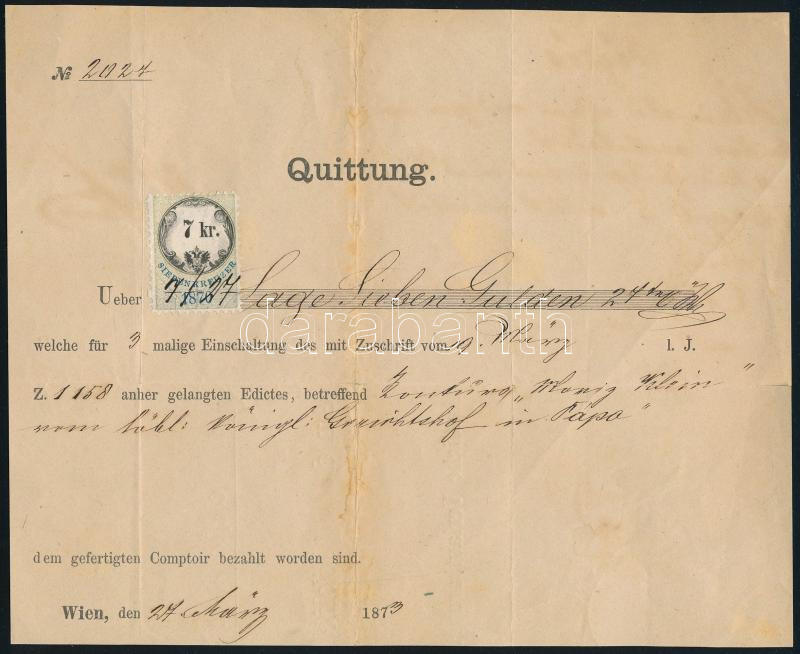 № 2024
Quittung.
7 kr.
SIEBENKREUZER
1870
Ueber 7/27 Sage Sieben Gulden 27 kr ÖW
darabanth
welche für 3 malige Einschaltung des mit Zuschrift vom 19 März l. J.
Z. 1158 anher gelangten Edictes, betreffend Konkurs „Moriz Klein"
vom löbl: königl: Gerichtshof in Pápa"
dem gefertigten Comptoir bezahlt worden sind.
Wien, den 24 März 1873